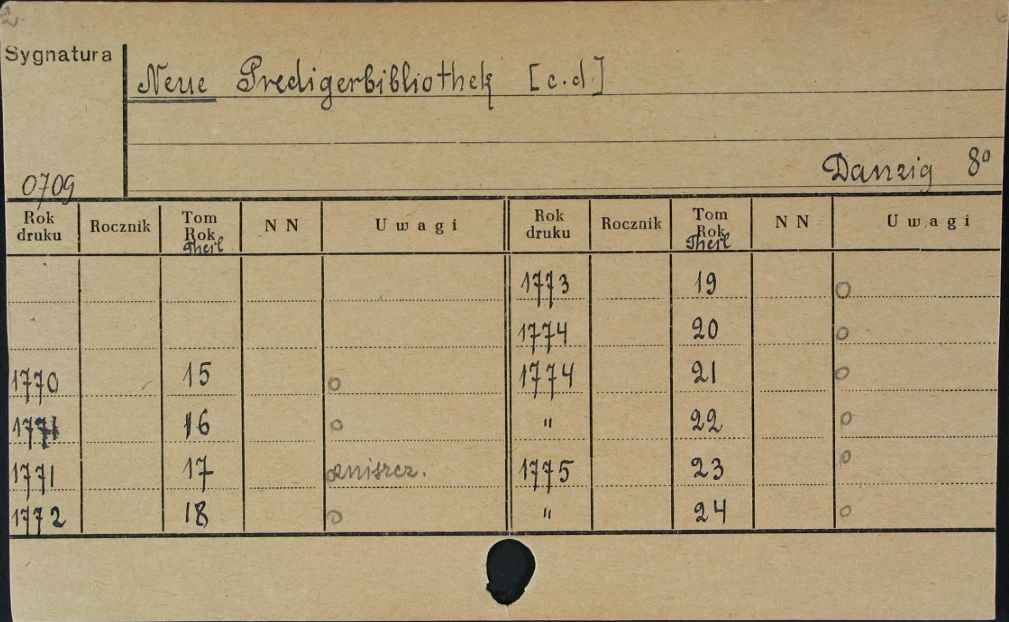 Sygnatura
Neue Predigerbibliothek [c.d.]
Danzig 8°
0709
Rok druku Rocznik Tom Rok Theil NN Uwagi Rok druku Rocznik Tom Rok Theil NN Uwagi
1773 19 o
1774 20 o
1770 15 o 1774 21 o
1771 16 o " 22 o
1771 17 zniszcz. 1775 23 o
1772 18 o " 24 o